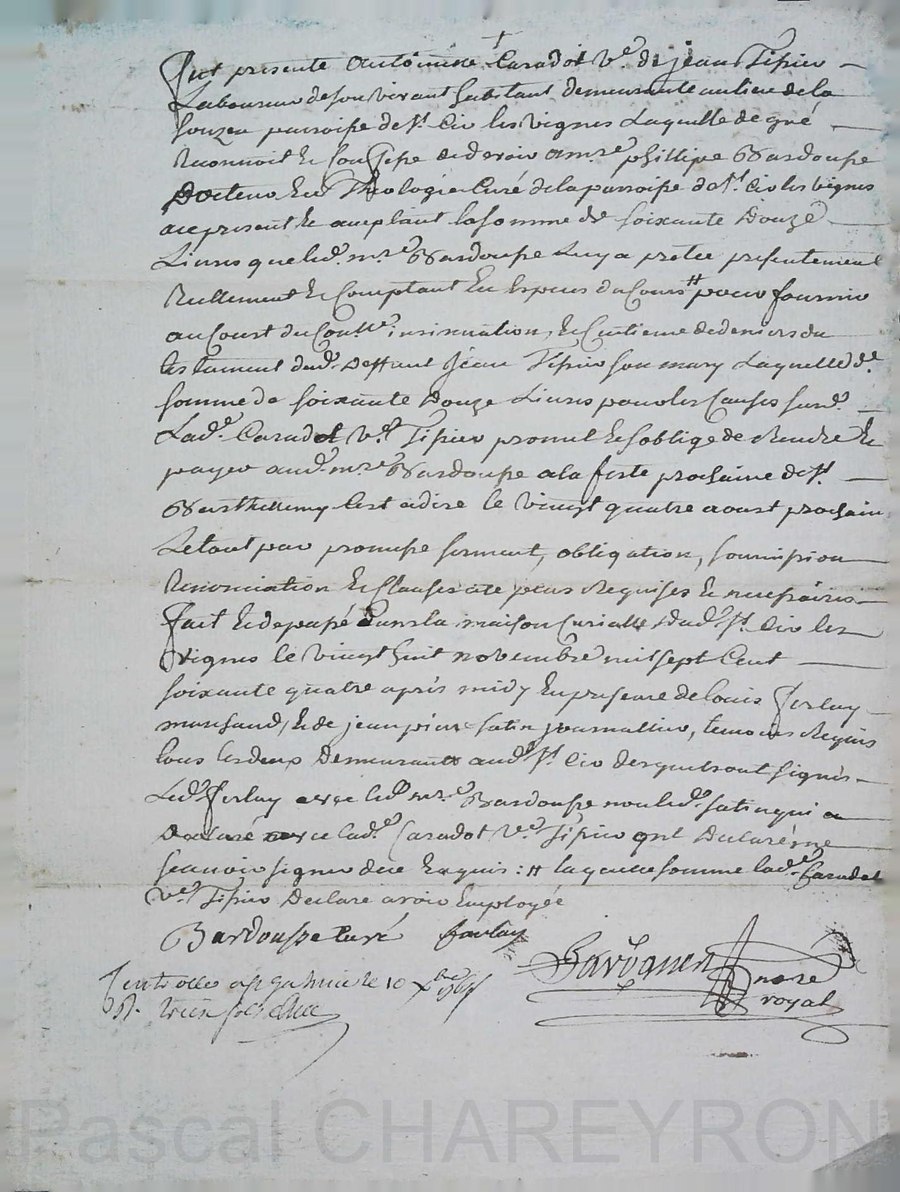 Fut presente Antoinette Caradot Ve. de jean Tipier
Laboureur de son vivant habitant demeurante au lieu de la
souzeu parroisse de St. Cir les vignes Laquelle de gré
Reconnoit Et Confesse de devoir a mre. phillipe Bardousse
Docteur En Theologie Curé de la parroisse de St. Cir les vignes
ace present Et aceptant la somme de soixante Douze
Livres que led. mre. Bardousse Luy a pretée presentement
Reellement Et Comptant En Especes du Cours # pour fournir
au Coust du Conlle. insinuation, Et Centieme dedeniers du
testament dud. Deffunt Jean Tipier son mary Laquelle de.
somme de soixante Douze Livres pour les Causes susd.
Lade. Caradot Ve. Tipier promet Et soblige de Rendre Et
payer aud. mre. Bardousse a la feste prochaine de St.
Barthellemy Cest adire le vingt quatre aoust prochain
Le tout par promesse serment, obligation, soumission
Renonciation Et Clauses ate peines Requises Et necessaires
fait Et de passé Dans la maison Curialle dud. St. Cir les
vignes le vingt huit novembre mil sept Cent
soixante quatre après midy En presence de louis forlay
marchand, Et de jean pierre satin journallier, temoins Requis
tous les deux Demeurants aud. St. Cir desquels ont signés
Led. forlay avec led. mre. Bardousse non led. satin qui a
Declaré avec lade. Caradot Ve. Tipier ont Declaré ne
scavoir signer de ce Enquis: # laquelle somme lade. Caradot
Ve. Tipier Declare avoir Employée
Bardousse Curé forlay
nore
royal
le 10 xbre 1764
Pascal CHAREYRON